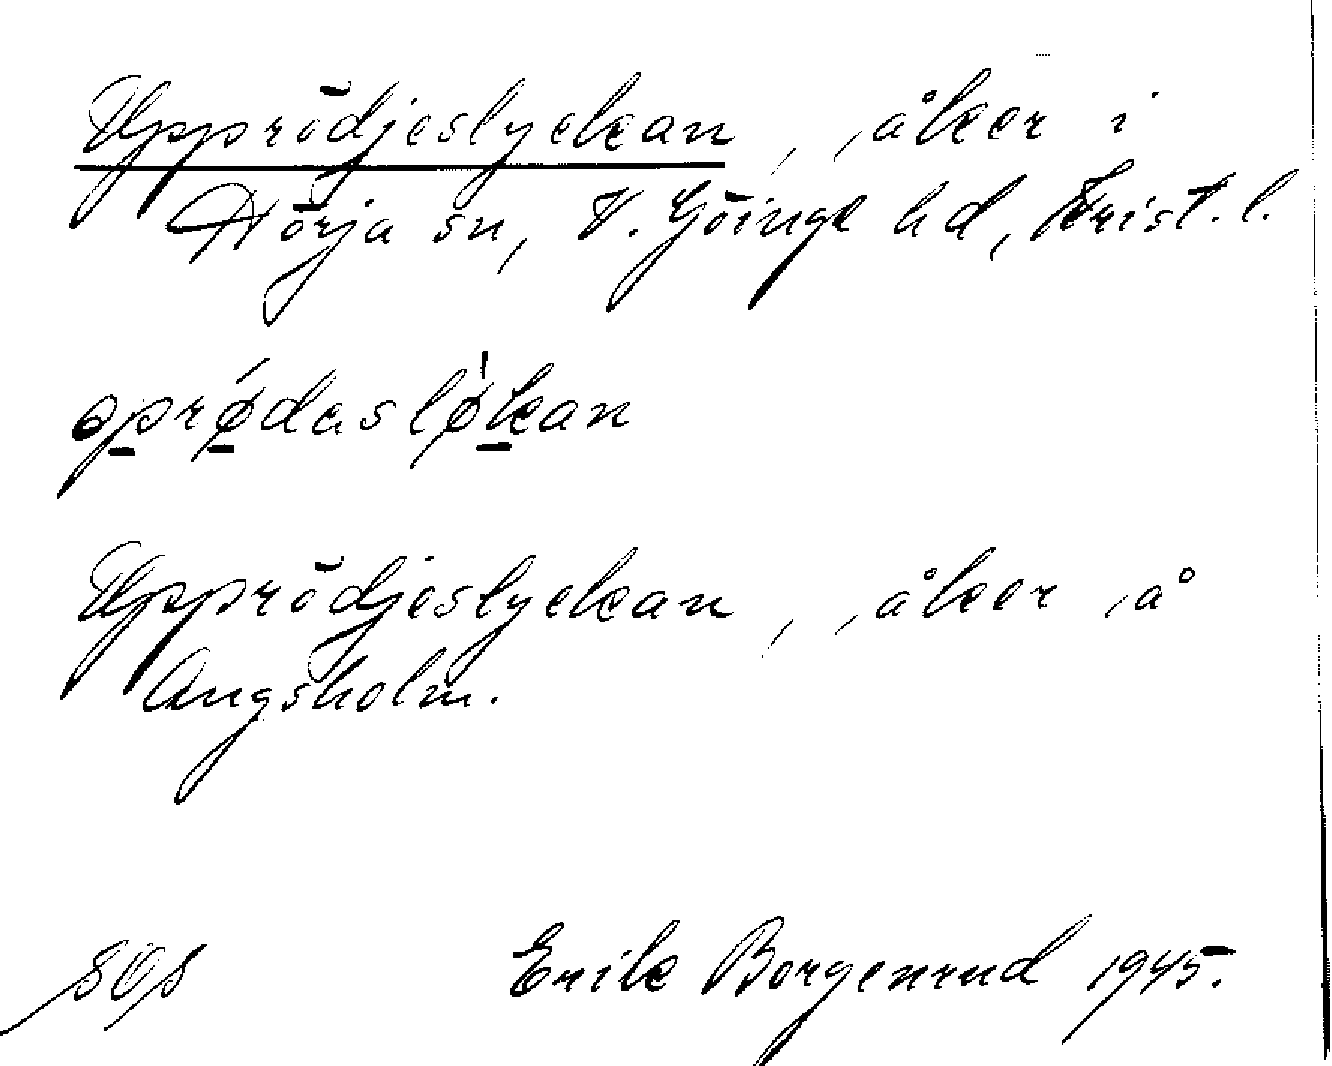 Upprödjeslyckan, åker i
Hörja sn, V. Göinge hd, Krist. l.
oprǿdasløkan
Upprödjeslyckan, åker å
Ängsholm.
SOS Erik Borgenrud 1945.